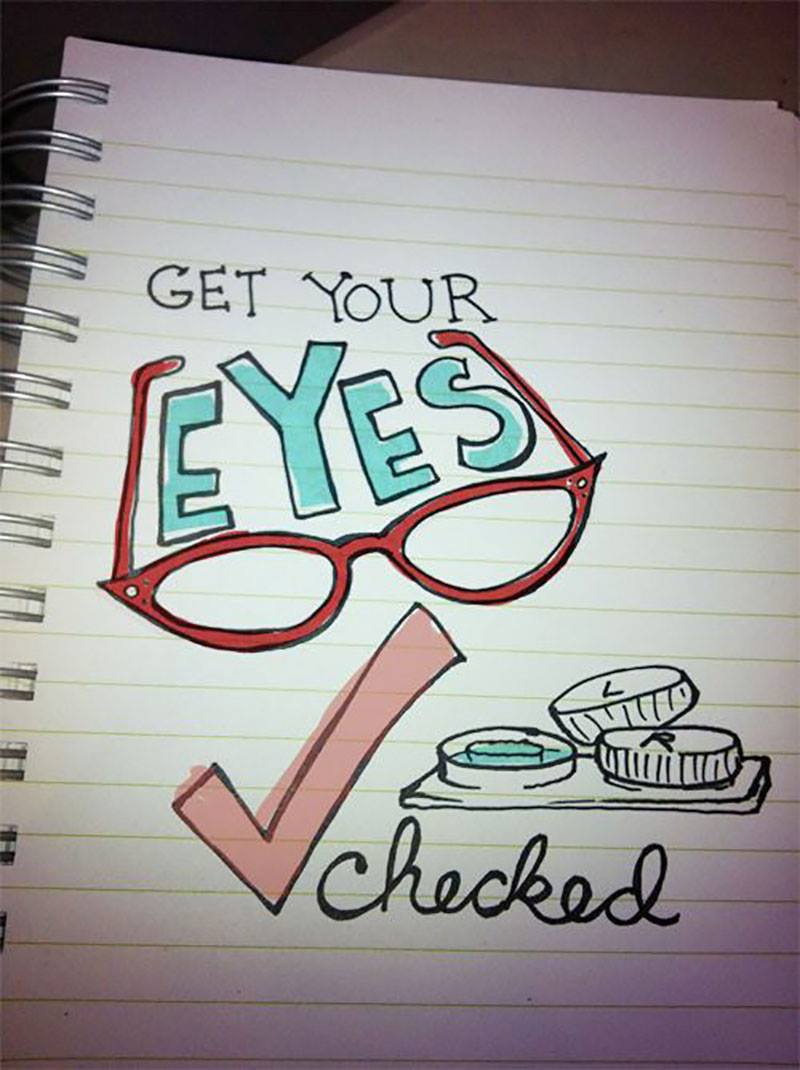 GET YOUR
EYES
L
R
checked